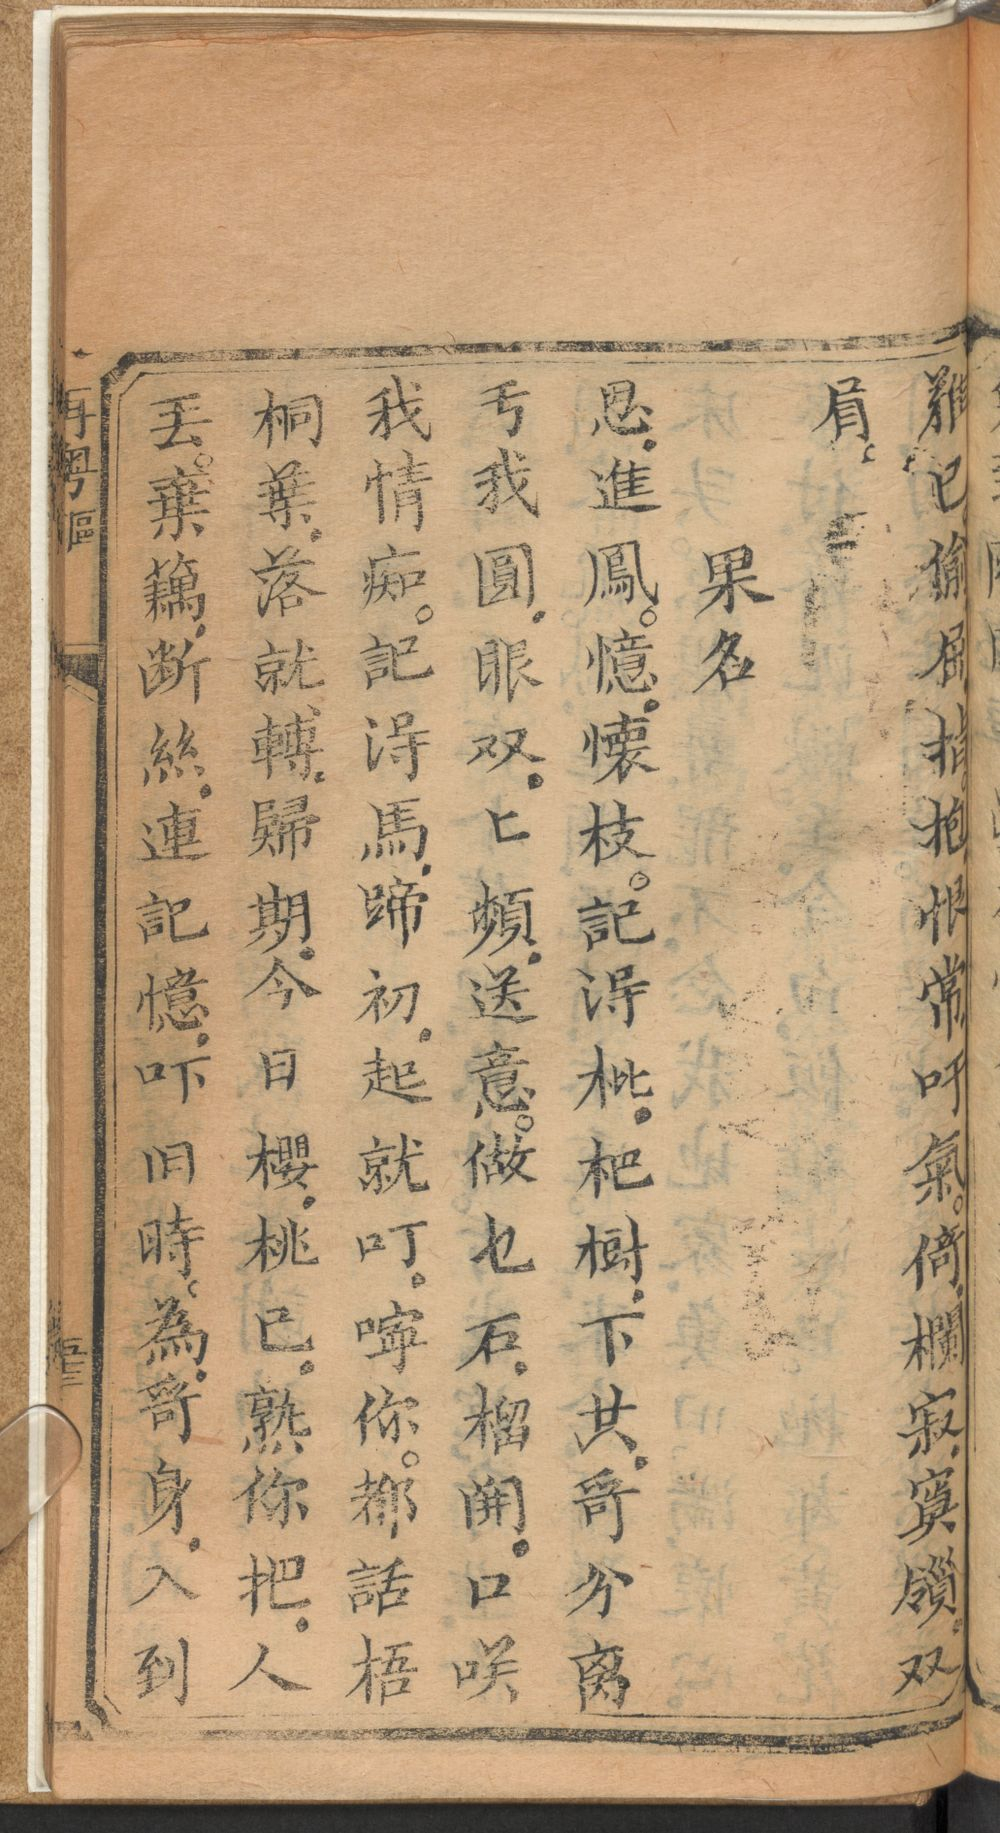 難已偷屈指抱恨常吁氣。倚欄寂寞鎖双
眉。
果名
思進鳳。憶懷枝。記淂枇杷樹下共哥分离
丐我圓眼双匕頻送意。做乜石榴開口咲
我情痴。記淂馬蹄初起就叮嚀你。都話梧
桐葉落就轉歸期今日櫻桃已熟你把人
丟。棄藕断絲連記憶吓旧時為哥身入到
再粤謳